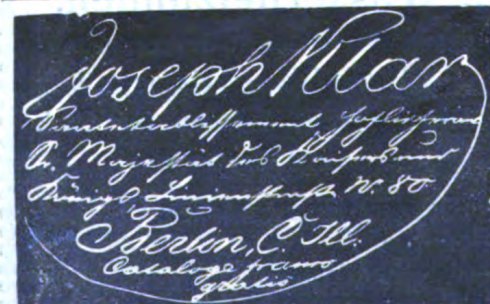 Joseph Klar
Samenetablissement Hoflieferant
Sr. Majestät des Kaisers und
Königs, Linienstraße N. 80
Berlin, C. Ill.
Cataloge franco
gratis